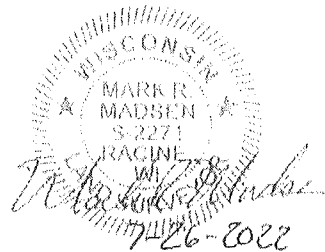 WISCONSIN
MARK R.
MADSEN
S-2271
RACINE
WI
7-26-2022